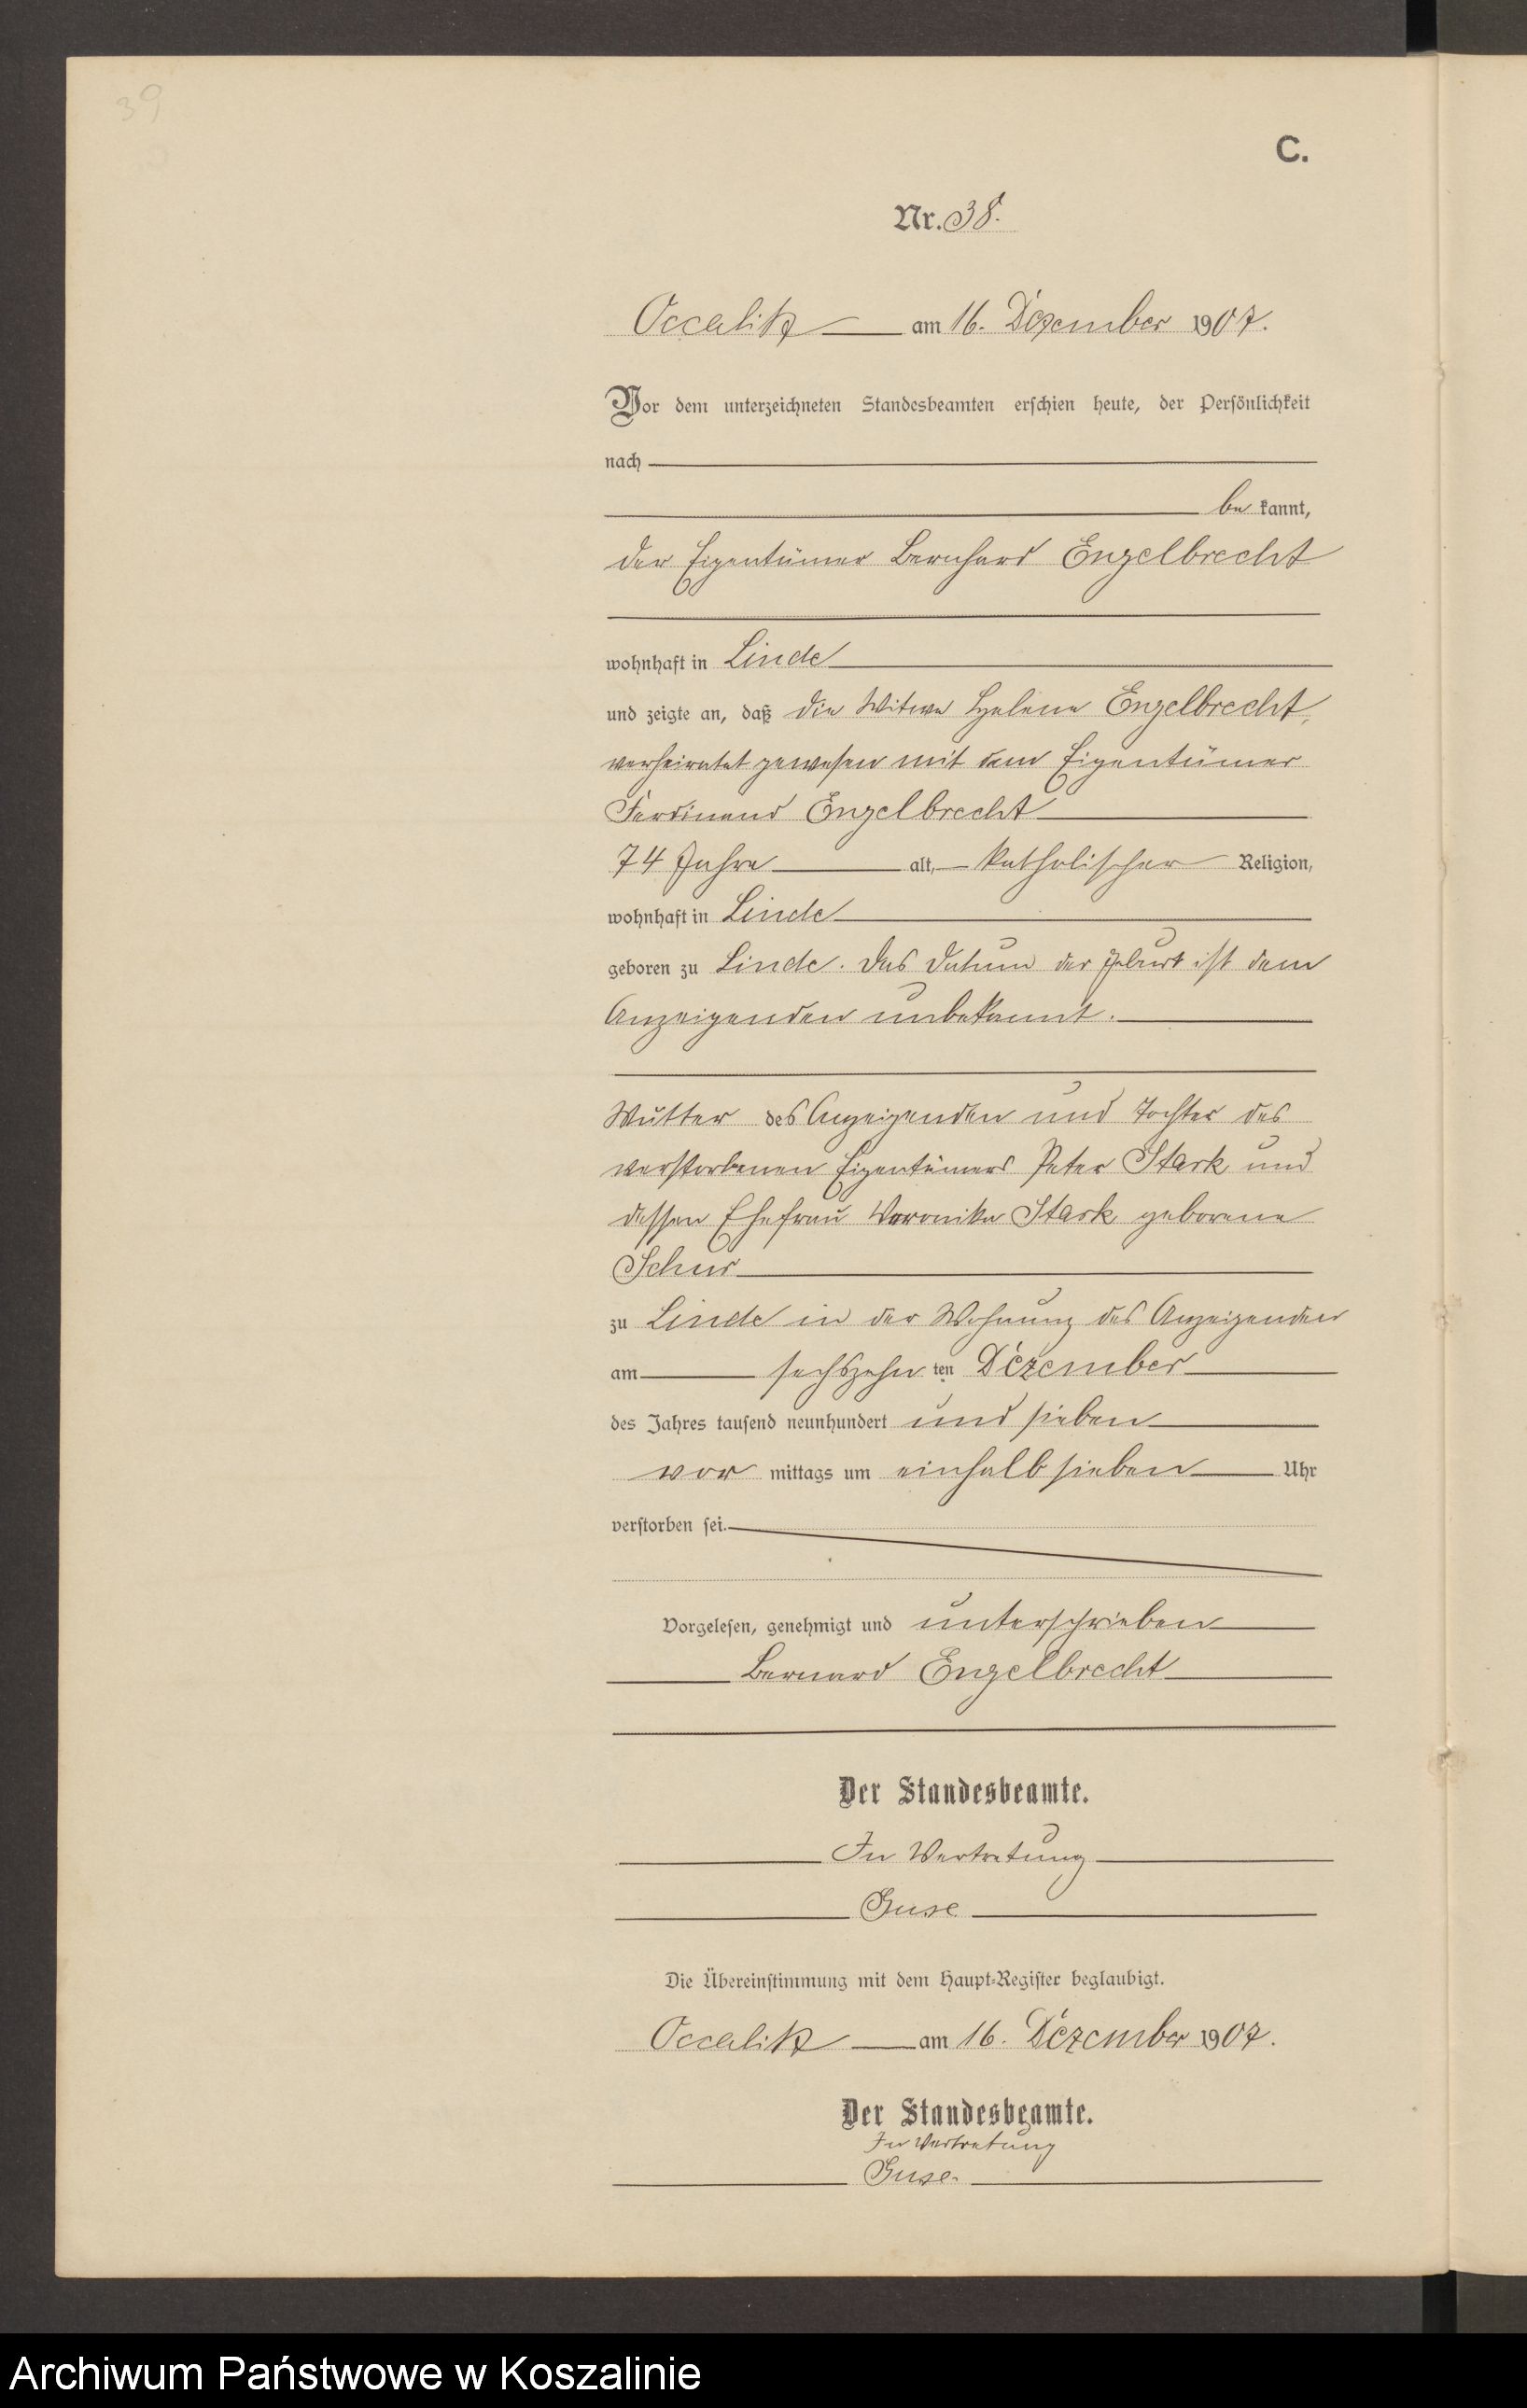 39
C.
Nr. 38.
Occalitz am 16. Dezember 1907.
Vor dem unterzeichneten Standesbeamten erschien heute, der Persönlichkeit
nach
be kannt,
der Eigentümer Bernhard Engelbrecht
wohnhaft in Linde
und zeigte an, daß die Witwe Helene Engelbrecht,
verheiratet gewesen mit dem Eigentümer
Ferdinand Engelbrecht
74 Jahre alt, katholischer Religion,
wohnhaft in Linde
geboren zu Linde. Das Datum der Geburt ist dem
Anzeigenden unbekannt.
Mutter des Anzeigenden und Tochter des
verstorbenen Eigentümers Peter Stark und
dessen Ehefrau Veronika Stark geborene
Schur
zu Linde in der Wohnung des Anzeigenden
am sechszehn ten Dezember
des Jahres tausend neunhundert und sieben
vor mittags um einhalb sieben Uhr
verstorben sei.
Vorgelesen, genehmigt und unterschrieben
Bernard Engelbrecht
Der Standesbeamte.
In Vertretung
Guse
Die Übereinstimmung mit dem Haupt-Register beglaubigt.
Occalitz am 16. Dezember 1907.
Der Standesbeamte.
In Vertretung
Guse.
Archiwum Państwowe w Koszalinie